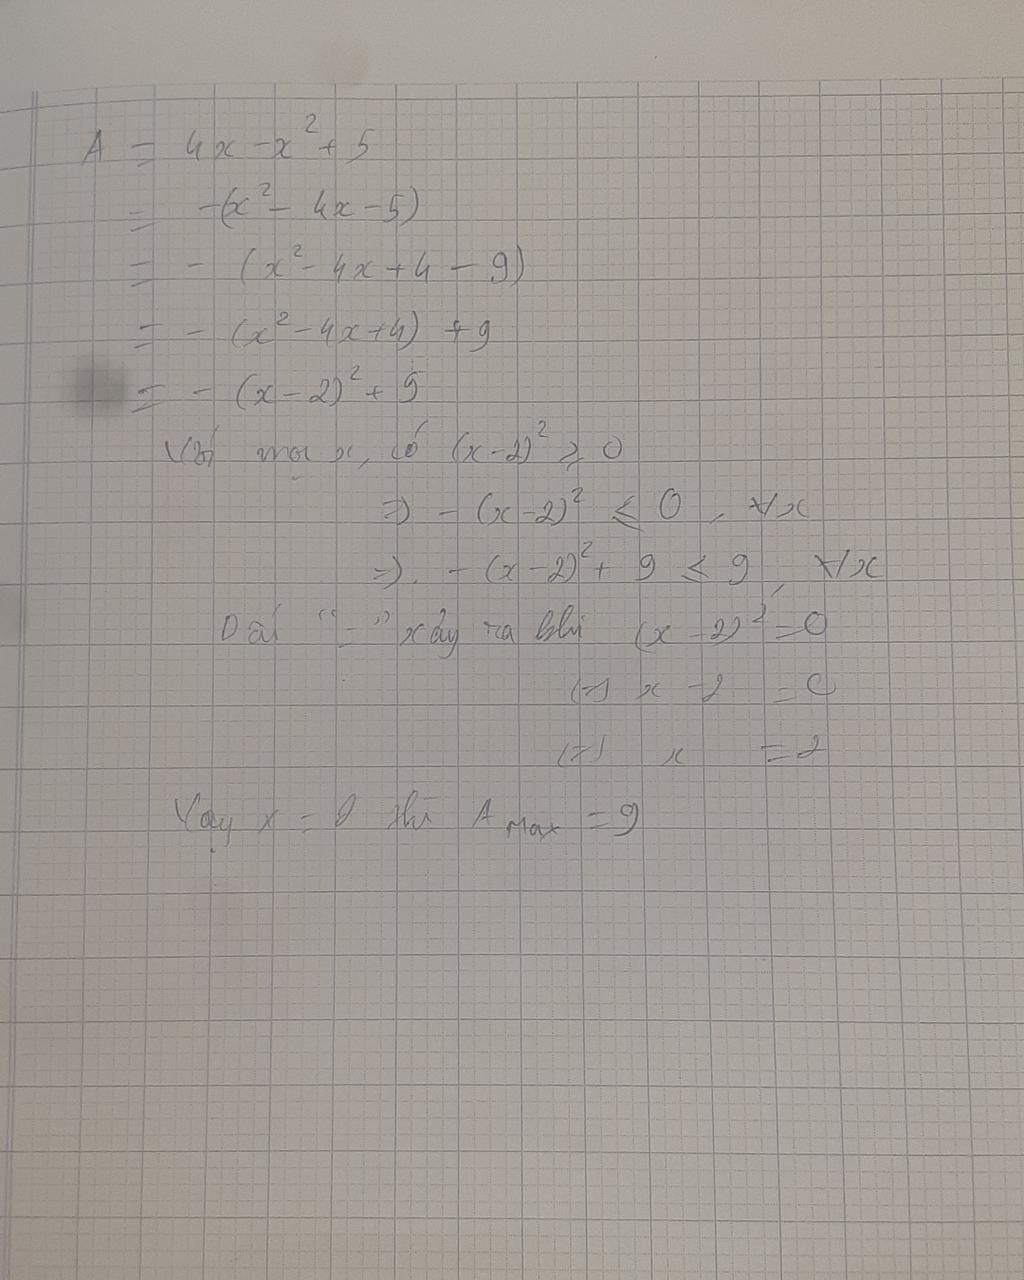 A = 4x - x² + 5
= -(x² - 4x - 5)
= - (x² - 4x + 4 - 9)
= - (x² - 4x + 4) + 9
= - (x - 2)² + 9
Với mọi x, có (x - 2)² ⩾ 0
=> - (x - 2)² ⩽ 0, ∀x
=> - (x - 2)² + 9 ⩽ 9, ∀x
Dấu "=" xảy ra khi (x - 2)² = 0
(=) x - 2 = 0
(=) x = 2
Vậy x = 2 thì A Max = 9